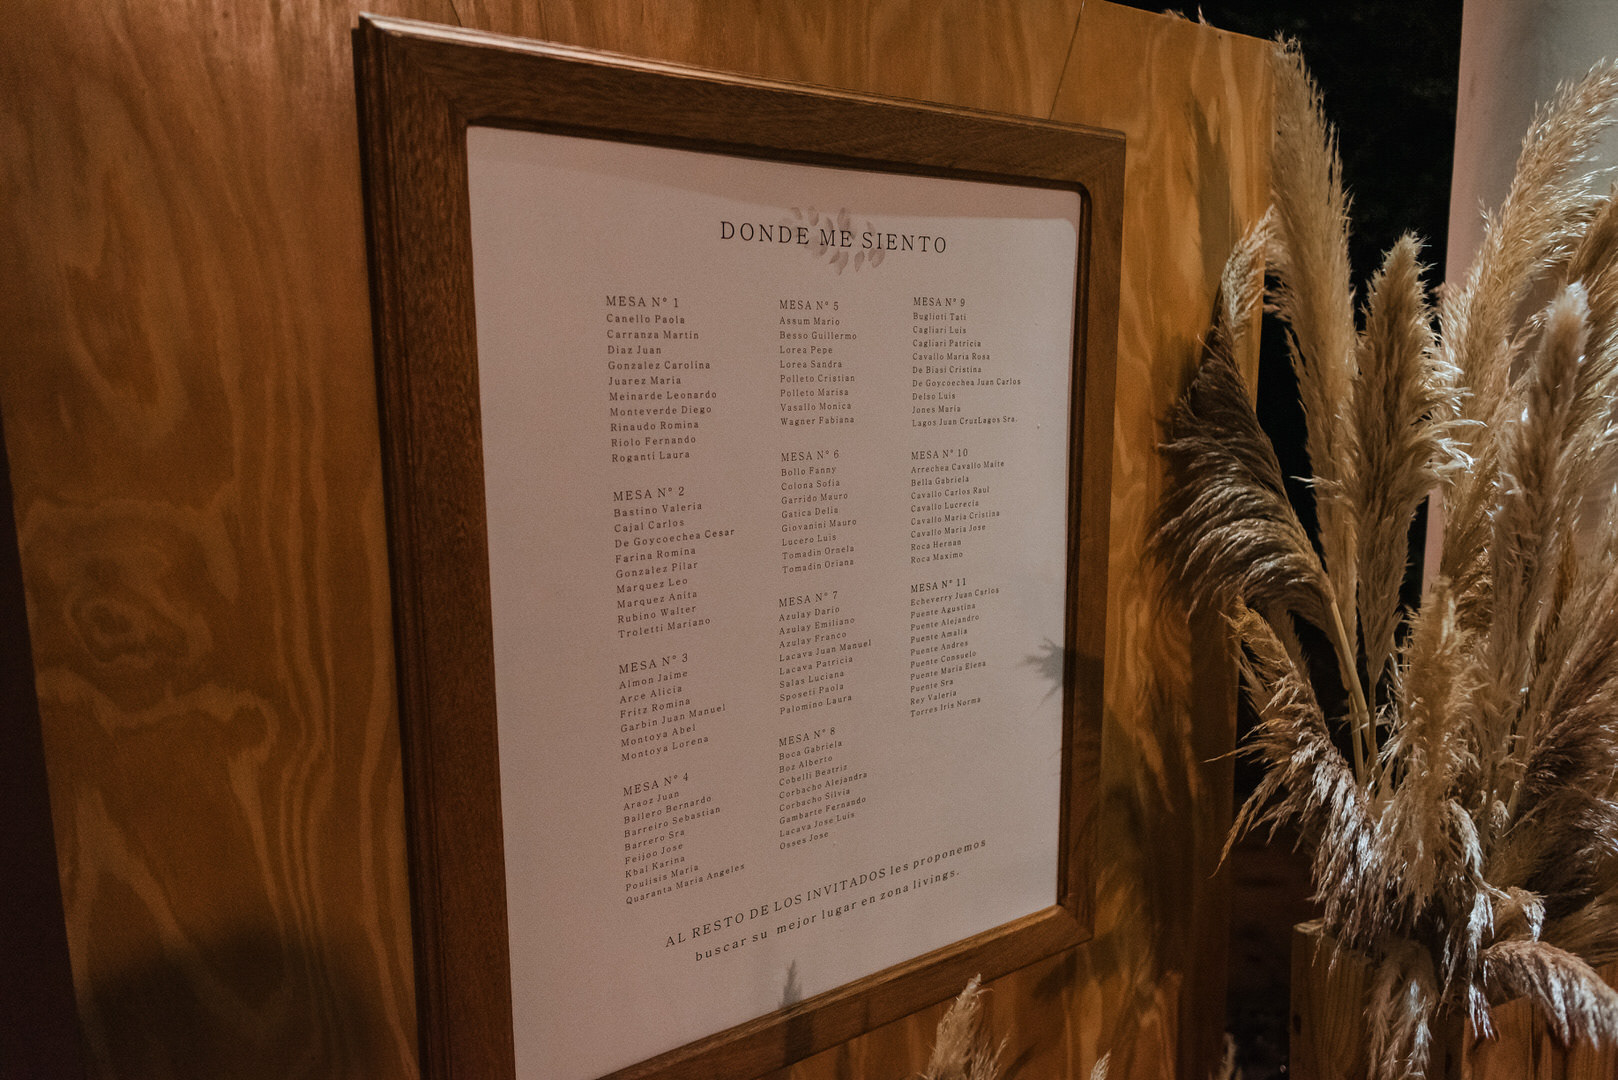 DONDE ME SIENTO
MESA N° 1
Canello Paola
Carranza Martín
Diaz Juan
Gonzalez Carolina
Juarez María
Meinarde Leonardo
Monteverde Diego
Rinaudo Romina
Riolo Fernando
Roganti Laura
MESA N° 2
Bastino Valeria
Cajal Carlos
De Goycoechea Cesar
Farina Romina
Gonzalez Pilar
Marquez Leo
Marquez Anita
Rubino Walter
Troletti Mariano
MESA N° 3
Almon Jaime
Arce Alicia
Fritz Romina
Garbin Juan Manuel
Montoya Abel
Montoya Lorena
MESA N° 4
Araoz Juan
Ballero Bernardo
Barreiro Sebastian
Barrero Sra
Feijoo Jose
Kbal Karina
Poulisis María
Quaranta Maria Angeles
MESA N° 5
Assum Mario
Besso Guillermo
Lorea Pepe
Lorea Sandra
Polleto Cristian
Polleto Marisa
Vasallo Monica
Wagner Fabiana
MESA N° 6
Bollo Fanny
Colona Sofia
Garrido Mauro
Gatica Delia
Giovanini Mauro
Lucero Luis
Tomadin Ornela
Tomadin Oriana
MESA N° 7
Azulay Dario
Azulay Emiliano
Azulay Franco
Lacava Juan Manuel
Lacava Patricia
Salas Luciana
Sposeti Paola
Palomino Laura
MESA N° 8
Boca Gabriela
Boz Alberto
Cobelli Beatriz
Corbacho Alejandra
Corbacho Silvia
Gambarte Fernando
Lacava Jose Luis
Osses Jose
MESA N° 9
Buglioti Tati
Cagliari Luis
Cagliari Patricia
Cavallo Maria Rosa
De Biasi Cristina
De Goycoechea Juan Carlos
Delso Luis
Jones Maria
Lagos Juan CruzLagos Sra.
MESA N° 10
Arrechea Cavallo Maite
Bella Gabriela
Cavallo Carlos Raul
Cavallo Lucrecia
Cavallo Maria Cristina
Cavallo Maria Jose
Roca Hernan
Roca Maximo
MESA N° 11
Echeverry Juan Carlos
Puente Agustina
Puente Alejandro
Puente Amalia
Puente Andres
Puente Consuelo
Puente Maria Elena
Puente Sra
Rey Valeria
Torres Iris Norma
AL RESTO DE LOS INVITADOS les proponemos
buscar su mejor lugar en zona livings.